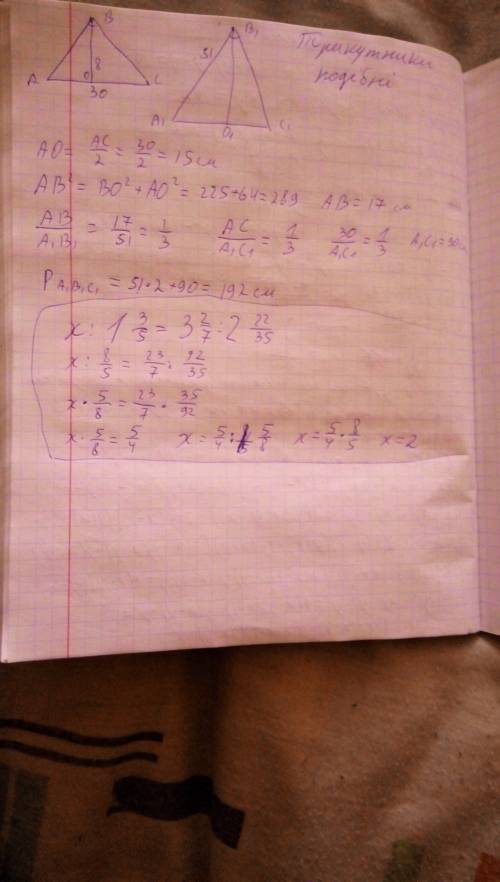 B B₁
51
Трикутники
подебні
A O 8 C
30
A₁ O₁ C₁
AO = AC/2 = 30/2 = 15 см
AB² = BO² + AO² = 225+64 = 289 AB = 17 см
AB/A₁B₁ = 17/51 = 1/3 AC/A₁C₁ = 1/3 30/A₁C₁ = 1/3 A₁C₁ = 90см
P A₁B₁C₁ = 51·2+90 = 192 см
x : 1 3/5 = 3 2/7 : 2 22/35
x : 8/5 = 23/7 : 92/35
x · 5/8 = 23/7 · 35/92
x · 5/8 = 5/4 x = 5/4 : 5/8 x = 5/4 · 8/5 x = 2